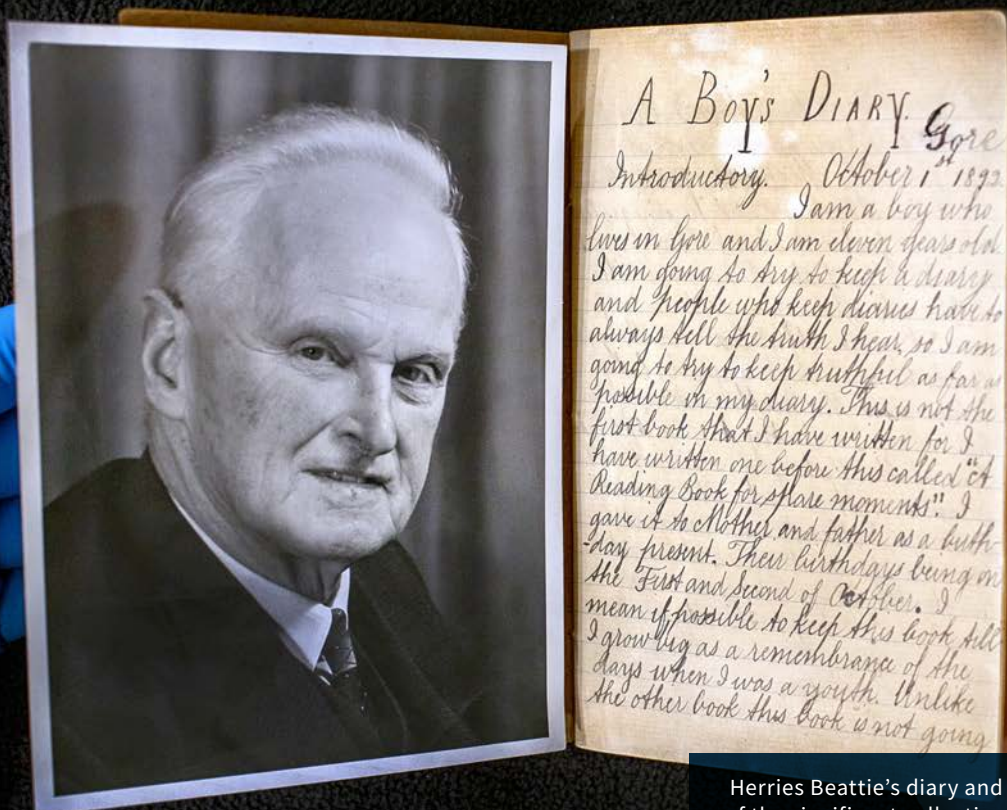 A BOY'S DIARY.
Gore
Introductory. October 1st 1892
I am a boy who
lives in Gore and I am eleven years old
I am going to try to keep a diary
and people who keep diaries have to
always tell the truth I hear, so I am
going to try to keep truthful as far as
possible in my diary. This is not the
first book that I have written for I
have written one before this called "A
Reading Book for spare moments". I
gave it to Mother and father as a birth-
-day present. Their birthdays being on
the First and Second of October. I
mean if possible to keep this book till
I grow big as a remembrance of the
days when I was a youth. Unlike
the other book this book is not going
Herries Beattie's diary and